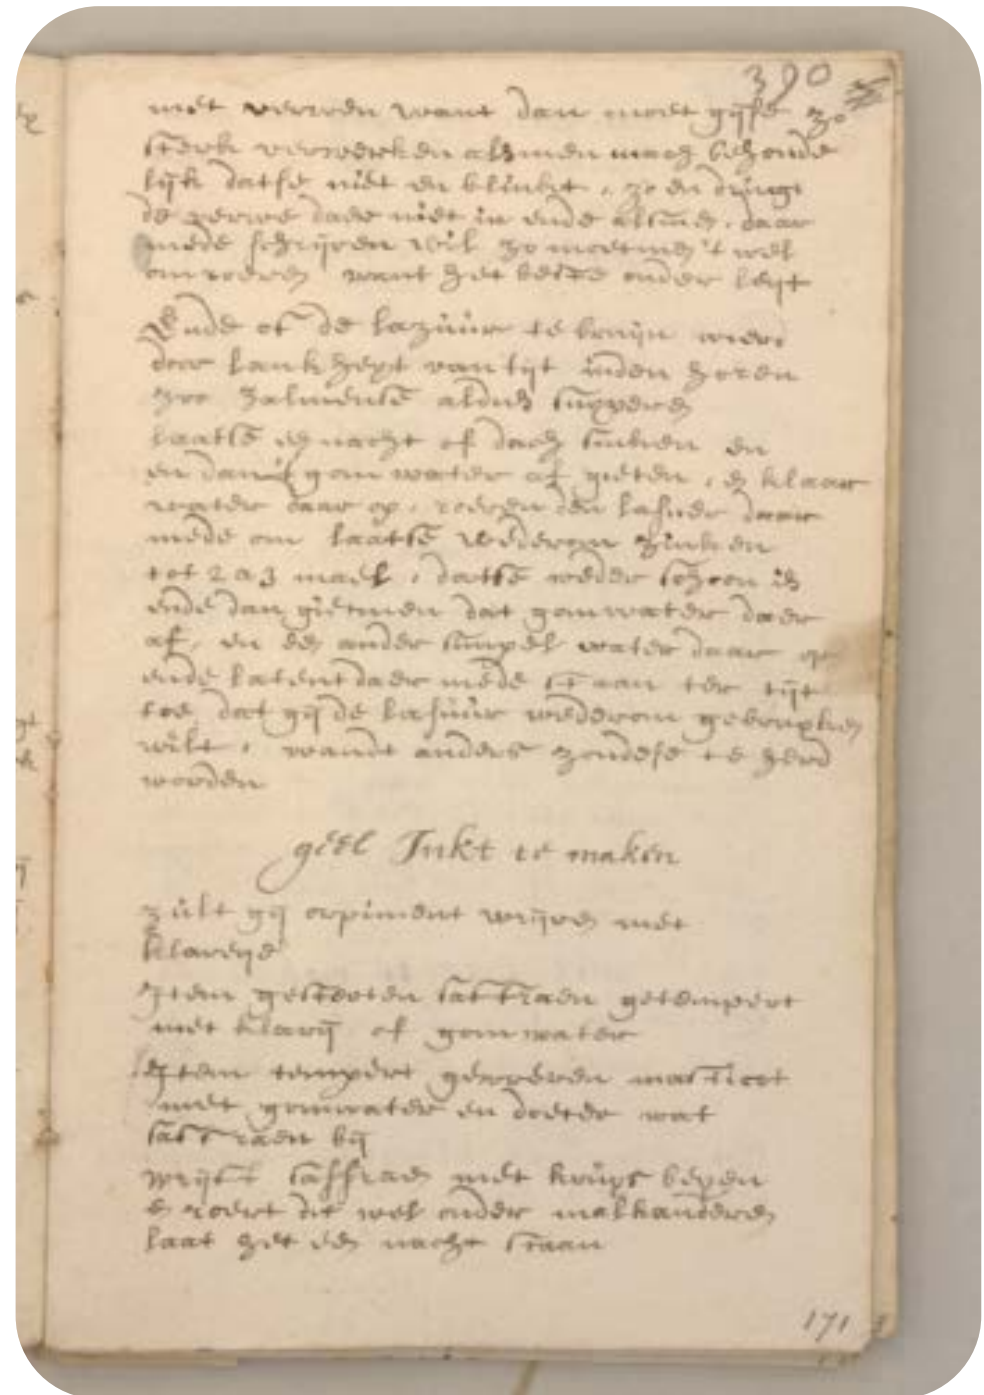 390
niet verven want dan moet gijse zo
sterk verwerken alsmen mach behende
lijk datse niet en blinkt, zo en dringt
de verwe daer niet in ende alsmen daar
mede schrijven wil zo moetmen 't wel
omroeren want het beste onder leijt
Ende of de lazuur te bruijn wiert
door lank hept van tijt inden horen
zoo zalmense aldus suyveren
laatse een nacht of dach sinken en
en dan 't gom water af gieten, en klaar
water daar op, roeren den lasuer daar
mede om laatse wederom zinken
tot 2 a 3 mael, datse weder schoon is
ende dan gietmen dat gomwater daer
af, en een ander simpel water daar op
ende latent daer mede staan ter tijt
toe dat gij de lasuur wederom gebruyken
wilt, wandt anders zoudese te herd
worden
geel Inkt te maken
zult gij orpiment wrijven met
klareije
Item gestooten saffraen getempert
met klarij of gomwater
Item tempert gewreven masticot
met gomwater en doeter wat
saffraen bij
wrijft saffraen met
en roert dit wel onder malkanderen
laat het een nacht staan
171